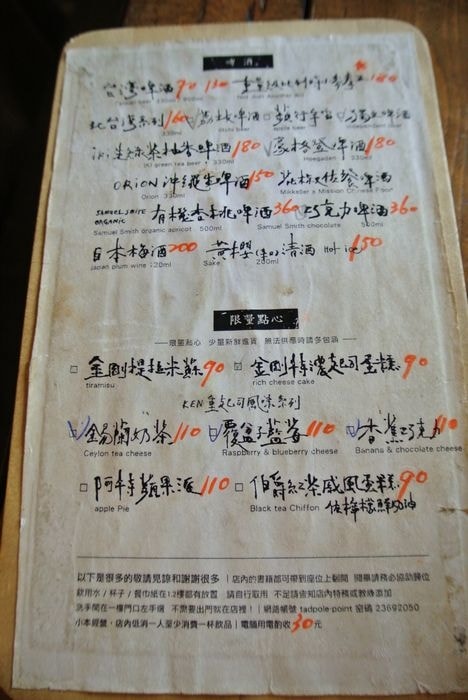 啤酒
台灣啤酒 90 130
Taiwan beer 330ml 600ml
180
北台灣系列 160 荔枝啤酒 蘋果啤酒
330ml litchi beer apple beer
iki 生綠茶柚香啤酒 180 豪格登啤酒 180
IKI green tea beer 330ml Hoegaden 330ml
ORION 沖繩生啤酒 150
Orion 330ml Mikkeller x Mission Chinese Food
SAMUEL SMITH ORGANIC 有機杏桃啤酒 360 巧克力啤酒 360
Samuel Smith organic apricot 500ml Samuel Smith chocolate 500ml
日本梅酒 200 黃櫻 清酒 Hot · ice 150
Japan plum wine 120ml Sake 200ml
限量點心
限量點心 少量新鮮進貨 無法供應時請多包涵
□ 金剛提拉米蘇 90 □ 金剛特濃起司蛋糕 90
tiramisu rich cheese cake
KEN 重起司風味系列
□ 錫蘭奶茶 110 □ 覆盆子藍莓 110 □ 香蕉巧克力 110
Ceylon tea cheese Raspberry & blueberry cheese Banana & chocolate cheese
□ 阿特蘋果派 110 □ 伯爵紅茶戚風蛋糕 90
apple Pie Black tea Chiffon 佐檸檬鮮奶油
以下是很多的敬請見諒和謝謝很多 | 店內的書籍都可帶到座位上翻閱 閱畢請務必協助歸位
飲用水 / 杯子 / 餐巾紙在1.2樓都有放置 請自行取用 不足請告知店內特務或教練添加
洗手間在一樓門口左手邊 不需要出門就在店裡! | 網路帳號 tadpole-point 密碼 23692050
小本經營,店內低消一人至少消費一杯飲品 | 電腦用電酌收 30 元